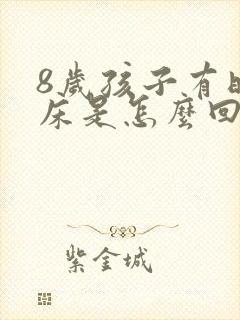 8歲孩子有時
床是怎麼回
紫金城